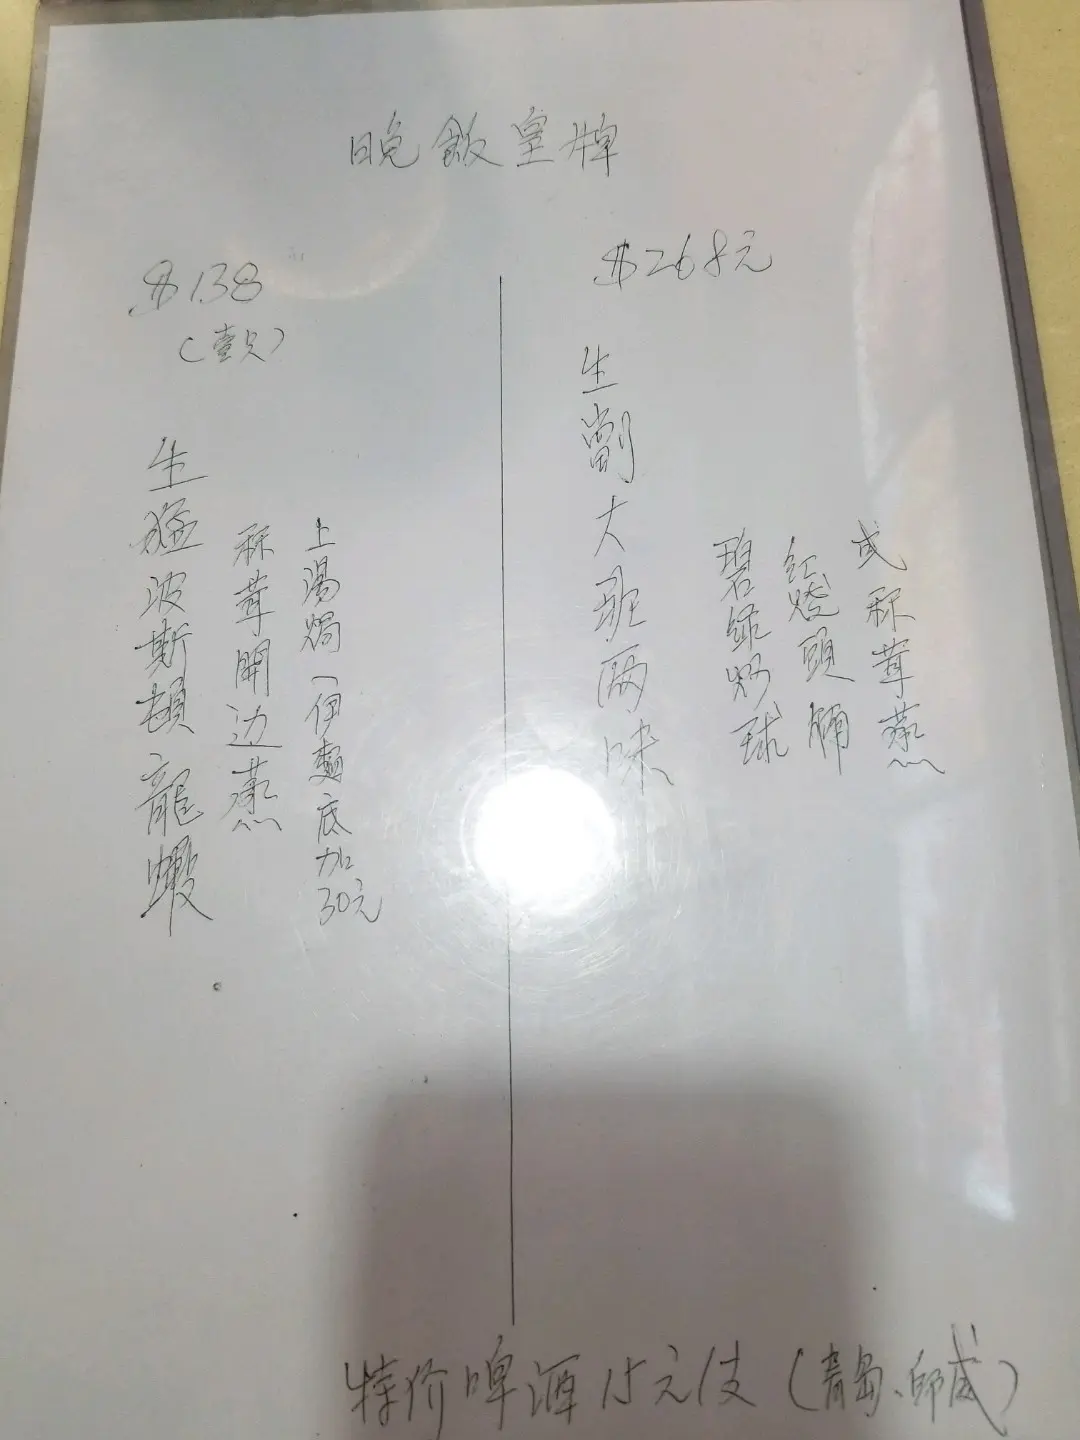 晚飯皇牌
$138
(壹只)
生猛波斯頓龍蝦
秝茸開边蒸
上湯焗(伊麵底加30元
$268元
生劏大班両味
碧綠炒球
紅炆頭腩
或秝茸蒸
特价啤酒15元支(青岛、